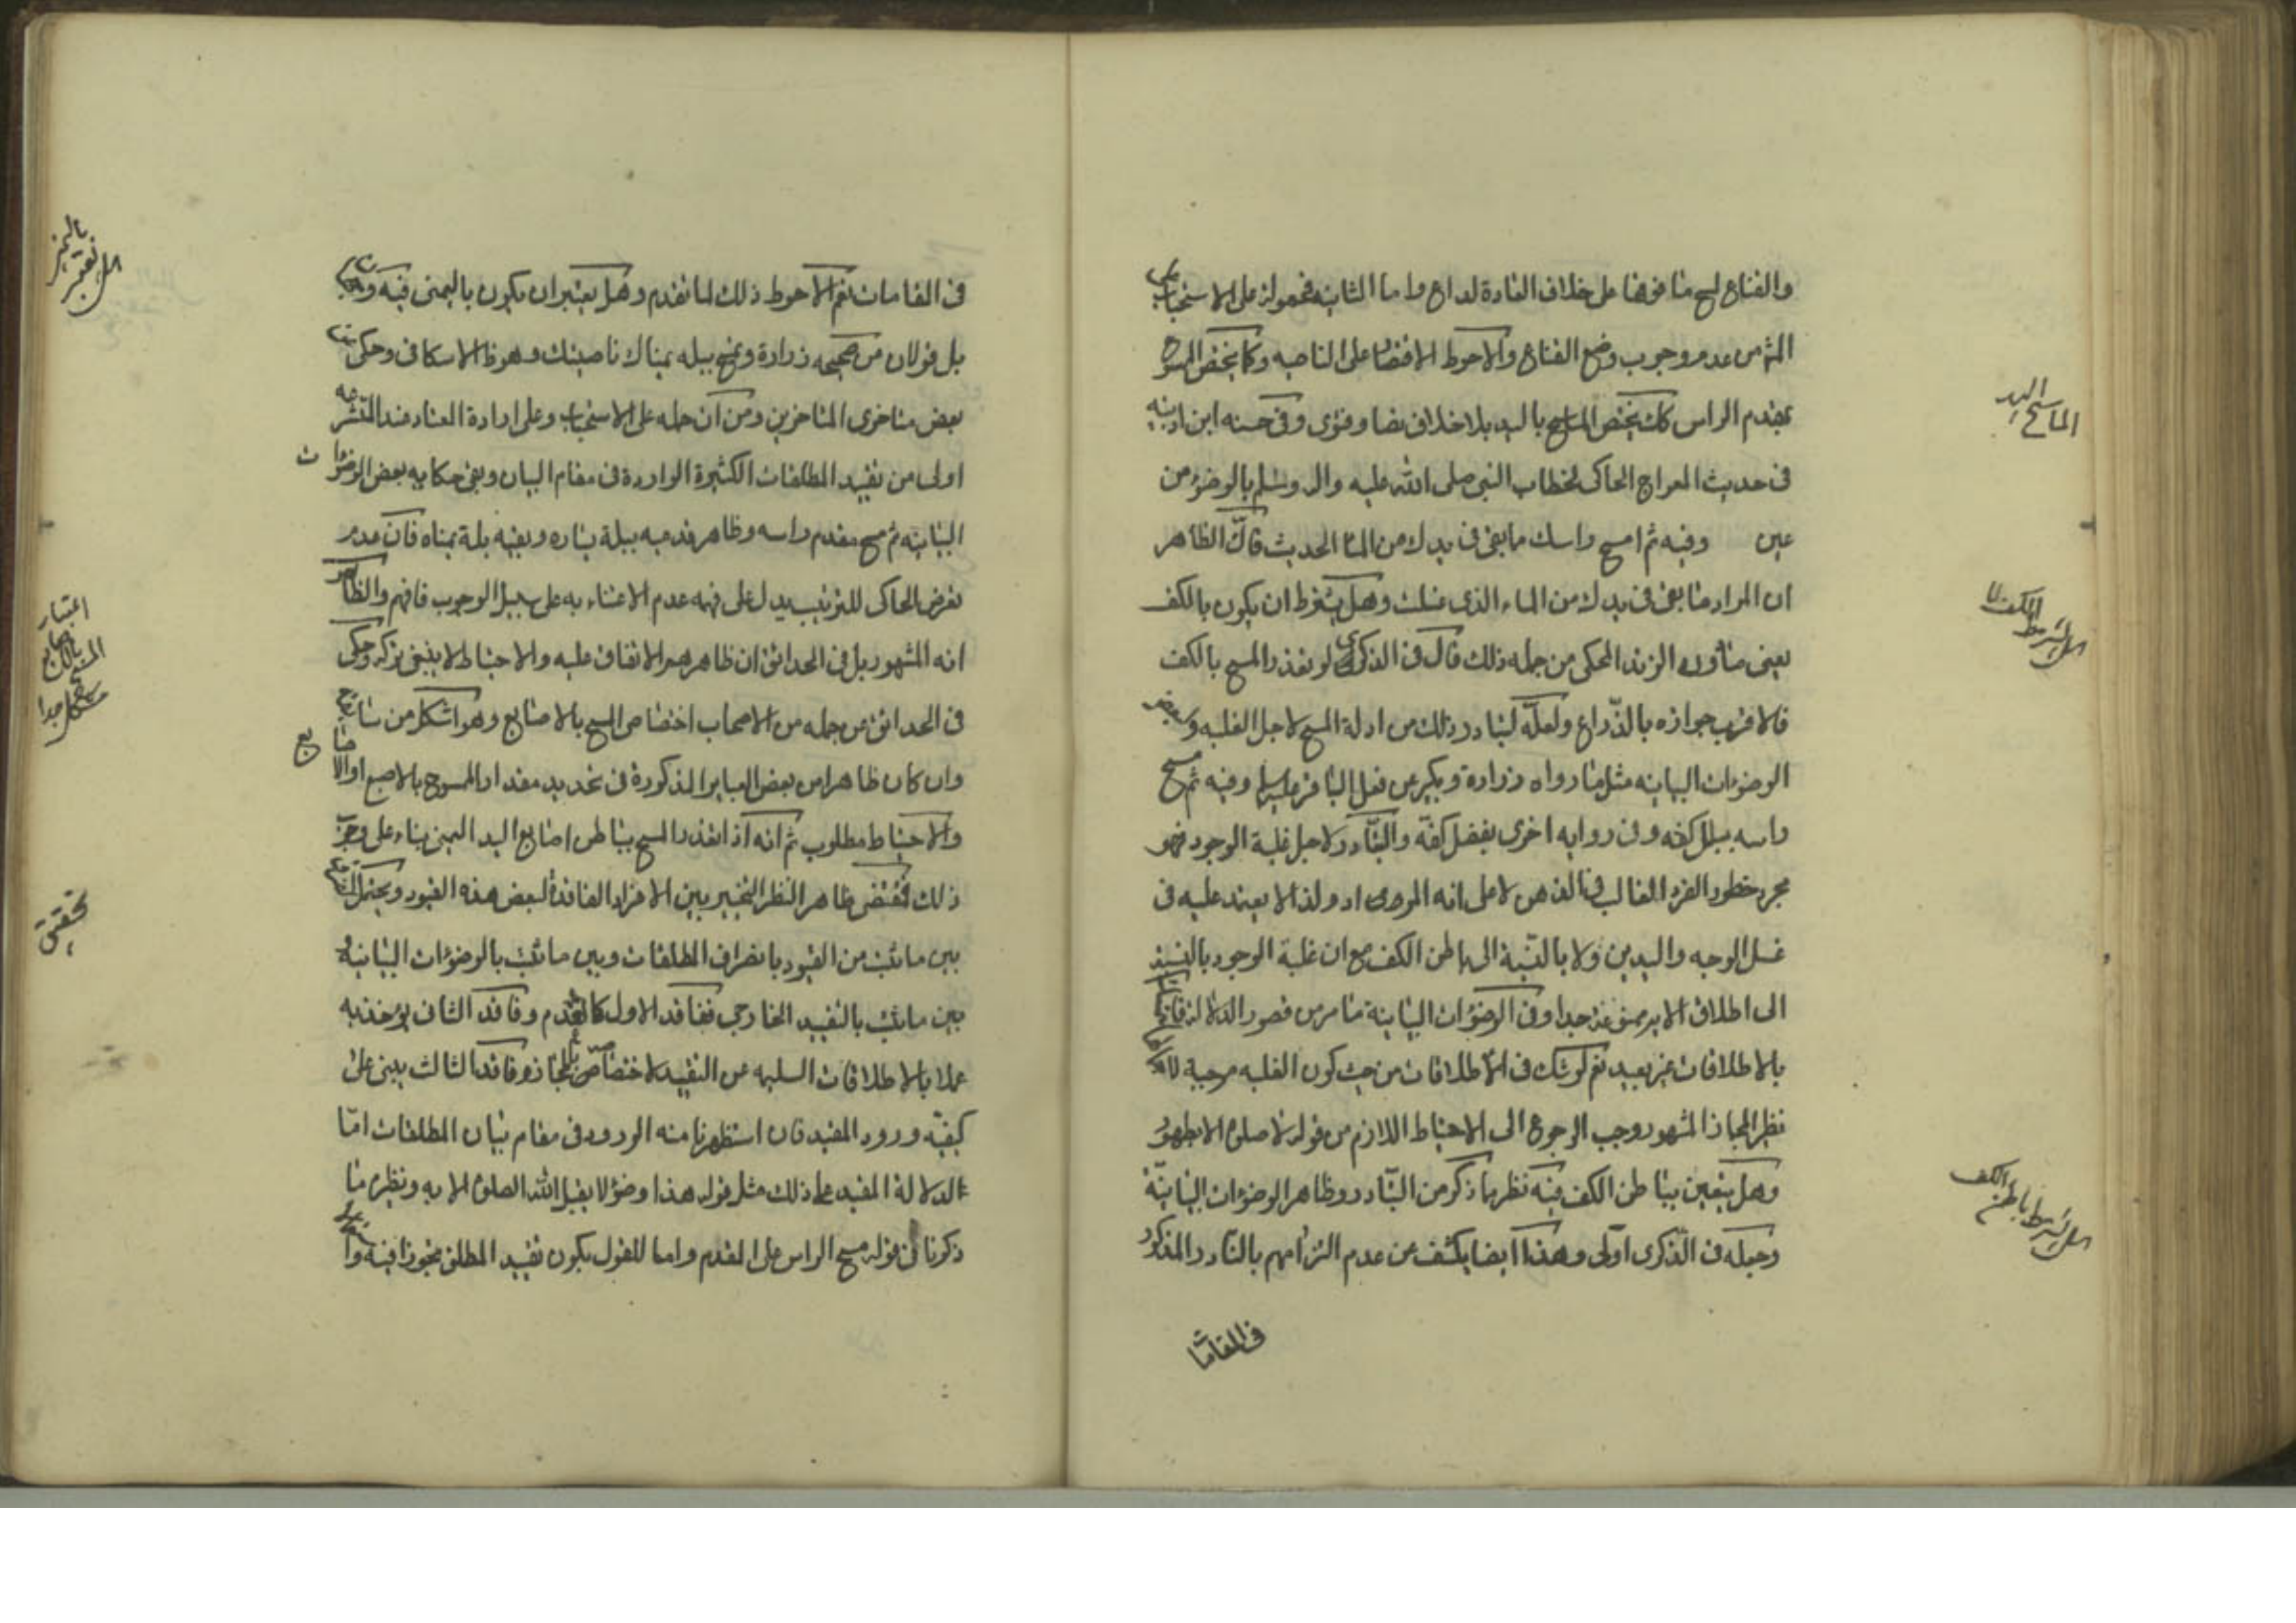 والقناع ليمسح ما فوقها على خلاف العادة لداع واما الثانية فمحمولة على الاستحباب
من عدم وجوب وضع القناع والاحوط الاقتصار على الناصيه وكما يختص الممسوح
بمقدم الراس كك يختص الماسح باليد بلا خلاف نصا وفتوى وفى حسنه ابن اذينه
فى حديث المعراج الحاكى لخطاب النبى صلى الله عليه واله وسلم بالوضوء من
عين وفيه ثم امسح راسك مما بقى فى يدك من الماء الحديث فان الظاهر
ان المراد ما بقى فى يدك من الماء الذى غسلت وهل يشترط ان يكون بالكف
يعنى ما دون الزند المحكى من جمله ذلك قال فى الذكرى لو تعذر المسح بالكف
فالاقرب جوازه بالذراع ولعله لتبادر ذلك من ادلة المسح لاجل الغلبه وبعض
الوضوءات البيانيه مثل ما رواه زرارة وبكير عن فعل الباقر عليه السلام وفيه ثم مسح
راسه ببلل كفه وفى روايه اخرى بفضل كفيه والتبادر لاجل غلبة الوجود فهو
مجرد خطور الفرد الغالب فى الذهن لا على انه المراد ولذا لا يعتد عليه فى
غسل الوجه واليدين ولا بالنسبة الى باطن الكف مع ان غلبة الوجود بالنسبة
الى اطلاق الاية ممنوعة جدا وفى الوضوءات البيانية ما مر من قصور الدلالة
بالاطلاقات غير بعيد نعم لو شك فى الاطلاقات من حيث كون الغلبه موجبة
نظير المجاز المشهور وجب الرجوع الى الاحتياط اللازم من قوله لا صلوة الا بطهور
وهل يتعين بباطن الكف فيه نظر مما ذكر من التبادر وظاهر الوضوءات البيانية
وجعله فى الذكرى اولى وهذا ايضا يكشف عن عدم التزامهم بالتبادر المذكور
فى المقامات
الماسح اليد
هل يشترط الكف
هل يشترط باطن الكف
فى المقامات نعم الاحوط ذلك لما تقدم وهل يعتبر ان يكون باليمنى فيه
بل قولان من صحيحه زرارة وتمسح ببله يمناك ناصيتك وهو ظ الاسكافى وحكى
بعض متاخرى المتاخرين ومن ان حمله على الاستحباب وعلى ارادة المعتاد عند المتشرعه
اولى من تقييد المطلقات الكثيرة الواردة فى مقام البيان وبقى حكايه بعض الوضوءات
البيانيه ثم مسح مقدم راسه وظاهر قدميه ببلة يساره وبقيه بلة يمناه فان عدم
تعرض الحاكى للترتيب يدل على فهمه عدم الاعتناء به على سبيل الوجوب فافهم والظاهر
انه المشهور بل فى الحدائق ان ظاهرهم الاتفاق عليه والاحتياط لا ينبغى تركه وحكى
فى الحدائق عن جمله من الاصحاب اختصاص المسح بالاصابع وهو اشكل من سابقه
وان كان ظاهرا من بعض العباير المذكورة فى تحديد مقدار الممسوح بالاصبع او الاصابع
والاحتياط مطلوب ثم انه اذا تعذر المسح بباطن اصابع اليد اليمنى بناء على وجوب
ذلك فمقتضى ظاهر النظر التخيير بين الافراد الفاقدة لبعض هذه القيود ويحتمل
بين ما ثبت من القيود بانصراف المطلقات وبين ما ثبت بالوضوءات البيانية و
بين ما ثبت بالتقييد الخارجى ففاقد الاول كالعدم وفاقد الثانى يؤخذ به
عملا بالاطلاقات السليمه عن التقييد لاختصاص وفاقد الثالث يبنى على
كيفية ورود المقيد فان استظهرنا منه الورود فى مقام بيان المطلقات اما
لدلالة المقيد على ذلك مثل قوله هذا وضوء لا يقبل الله الصلوة الا به ونظيره ما
ذكرنا فى قوله مسح الراس على المقدم واما للقول بكون تقييد المطلق تجوزا فيه
هل تعتبر باليمنى
اعتبار المسح بالاصابع مشكل جدا
تحقيق